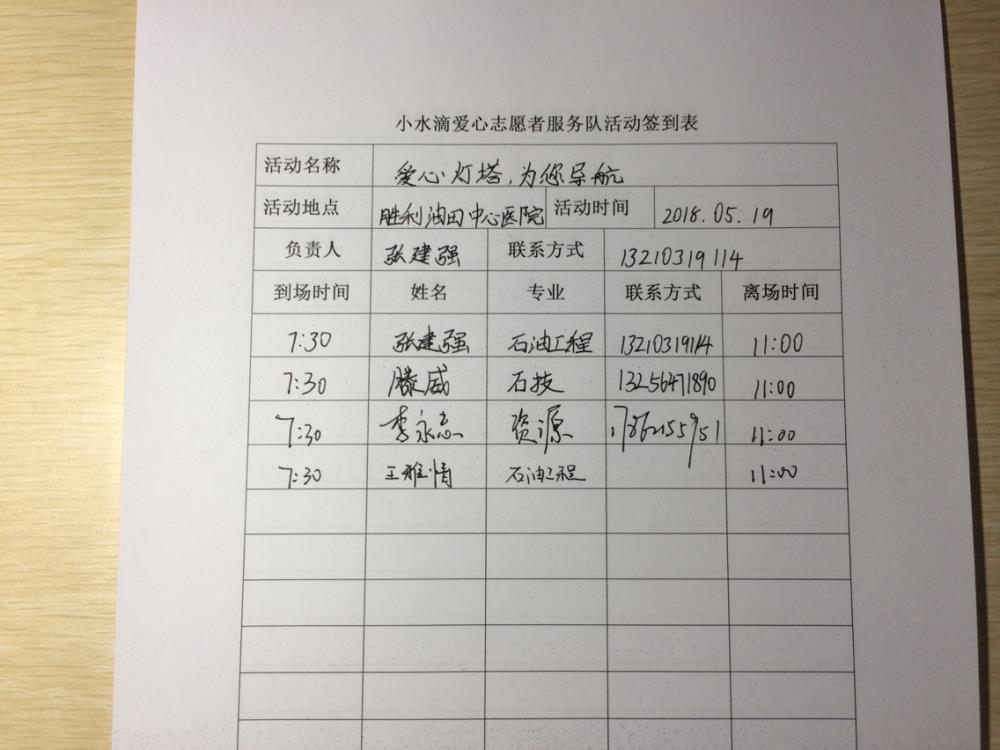 小水滴爱心志愿者服务队活动签到表
活动名称 爱心灯塔,为您导航
活动地点 胜利油田中心医院 活动时间 2018.05.19
负责人 张建强 联系方式 13210319114
到场时间 姓名 专业 联系方式 离场时间
7:30 张建强 石油工程 13210319114 11:00
7:30 滕威 石技 13256471890 11:00
7:30 李永志 资源 11:00
7:30 王雅情 石油工程 11:00